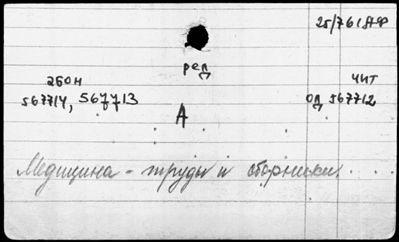 25/761
рел
абон
чит
567714, 567713
А
од 567712
Медицина - труды и сборники....